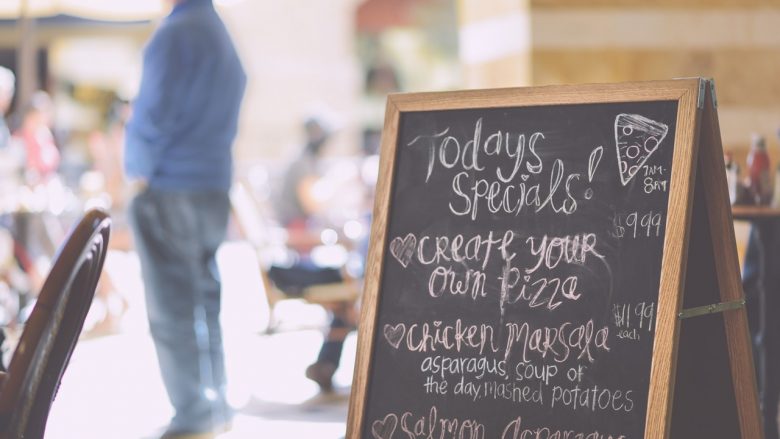 Todays
Specials!
7AM-
8PM
$9.99
Create Your
Own Pizza
$11.99
each
Chicken Marsala
asparagus, soup of
the day, Mashed potatoes
Salmon Asparagus